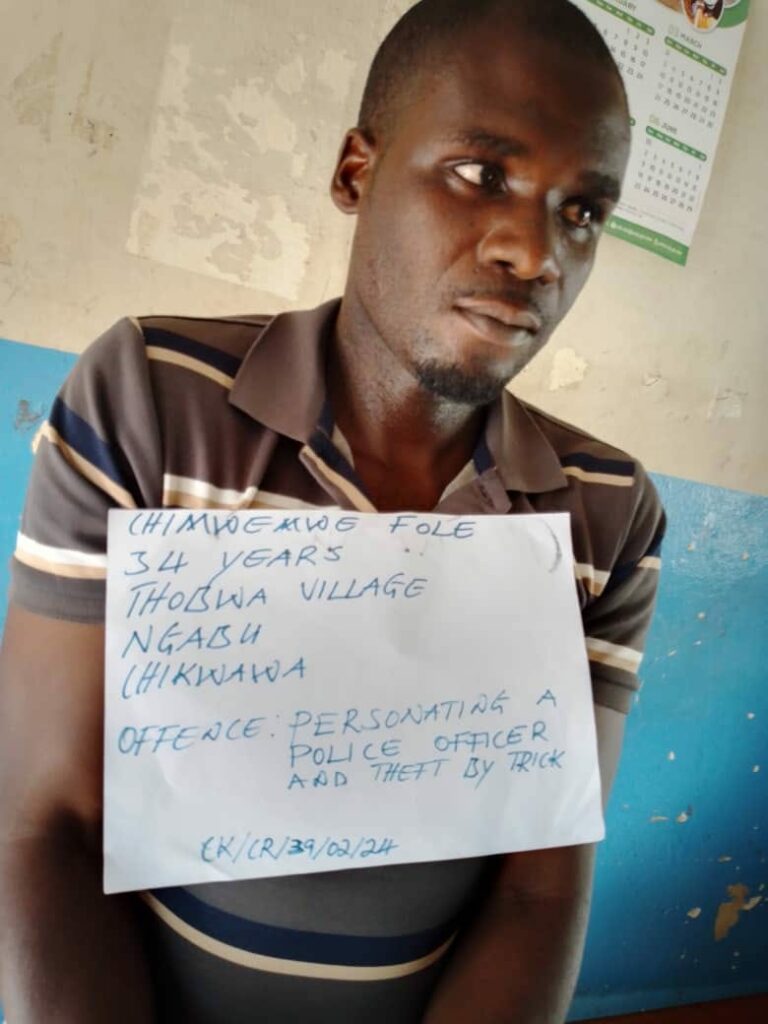 CHIMWEMWE FOLE
34 YEARS
THOBWA VILLAGE
NGABU
CHIKWAWA
OFFENCE: PERSONATING A
POLICE OFFICER
AND THEFT BY TRICK
CK/CR/39/02/24
MARCH
JUNE